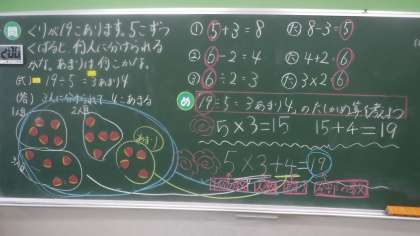 問 くりが19こあります。5こずつ
くばると、何人に分けられる
かな。あまりは何こかな。
(式) 19÷5=3あまり4
(答) 3人に分けられて4こあまる
1人目 2人目
3人目
あまり
① 5+3=8 た 8-3=5
② 6-2=4 た 4+2=6
③ 6÷2=3 た 3×2=6
め 19÷5=3あまり4、のたしかめ算を考えよう
5×3=15 15+4=19
5×3+4=19